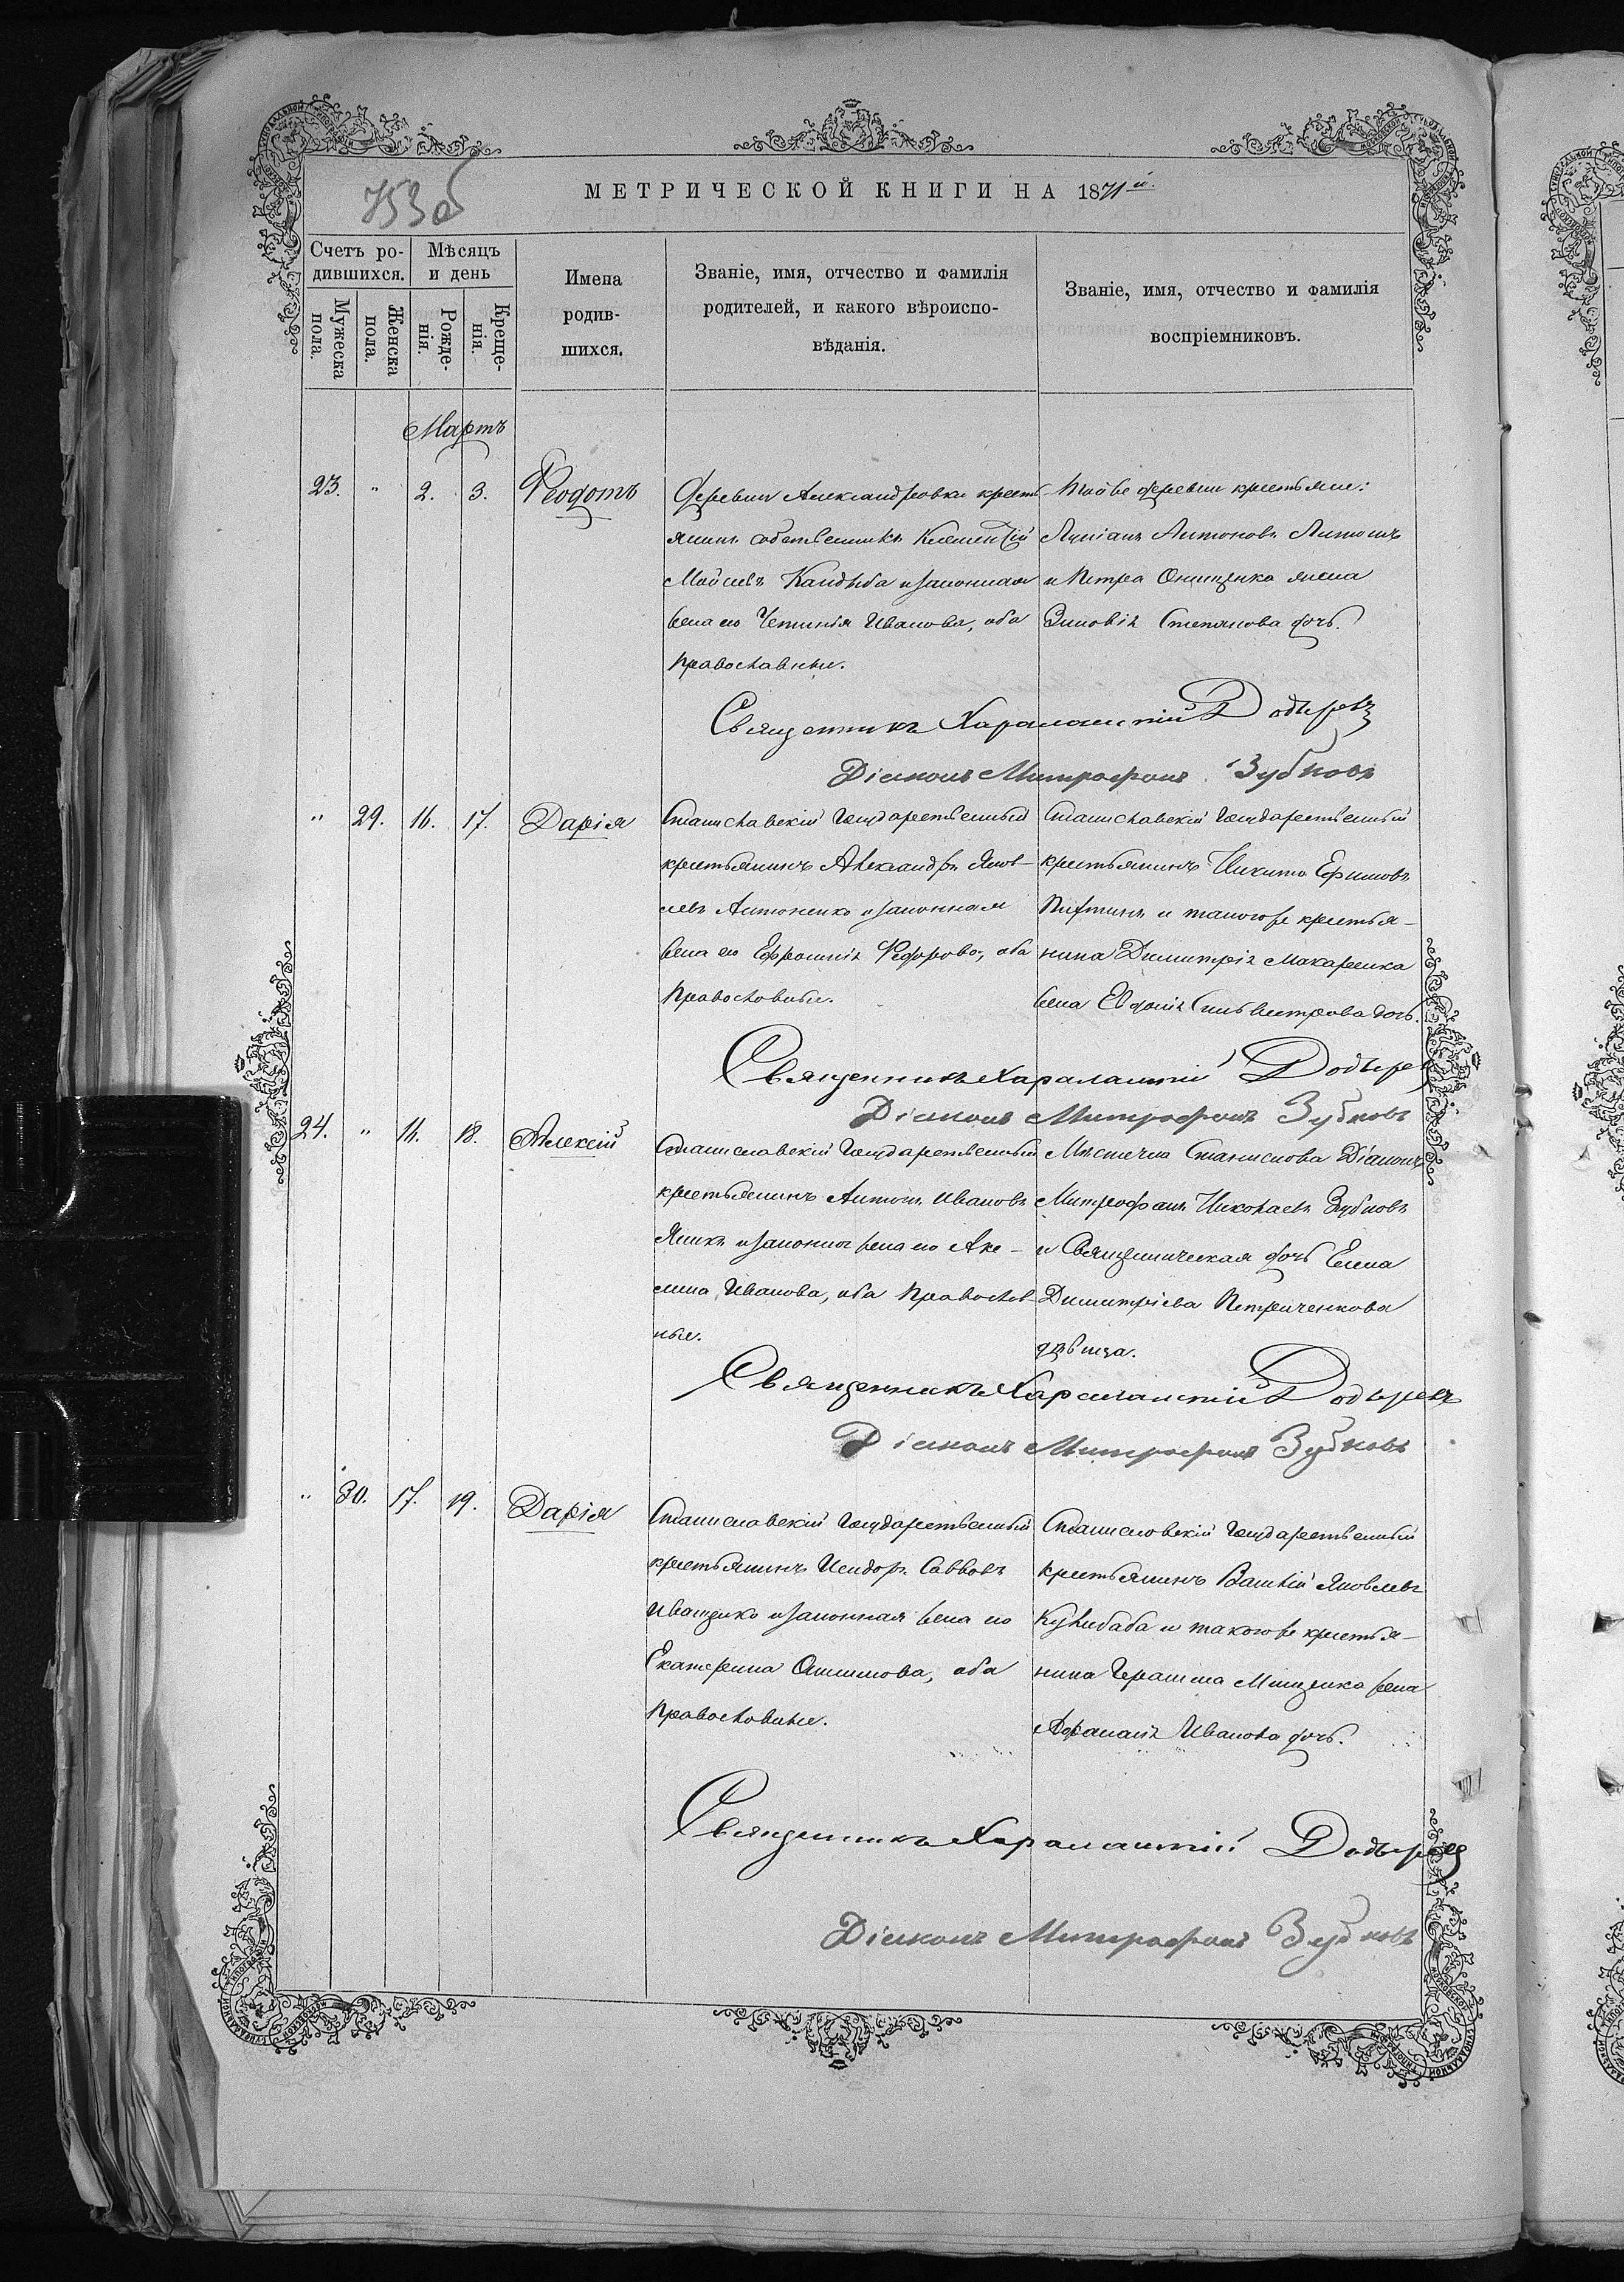 753об
МЕТРИЧЕСКОЙ КНИГИ НА 1871й.
Счетъ ро-
дившихся.
Мѣсяцъ
и день
Мужеска
пола.
Женска
пола.
Рожде-
нія.
Креще-
нія.
Имена
родив-
шихся.
Званіе, имя, отчество и фамилія
родителей, и какого вѣроиспо-
вѣданія.
Званіе, имя, отчество и фамилія
воспріемниковъ.
Мартъ
23. " 2. 3. Ѳеодотъ
Деревни Александровки кресть-
янинъ собственникъ Климентій
Моисеевъ Кандыба и законная
жена его Ивановна, оба
православные.
Той же деревни крестьяне:
Лукіанъ Антоновъ
и Петра Онищенка жена
Зиновія Степанова дочь.
Священникъ Харалампій
Діаконъ Митрофанъ Зубковъ
" 29. 16. 17. Дарія
Станиславскій Государственный
крестьянинъ Александръ Яков-
левъ Антоненко и законная
жена его Ефросинія Ѳедорова, оба
православные.
Станиславскій Государственный
крестьянинъ Никита Ефимовъ
и такогоже крестья-
нина Димитрія Макаренка
жена Евдокія Сильвестрова дочь.
Священникъ Харалампій
Діаконъ Митрофанъ Зубковъ
24. " 11. 18. Алексій
Станиславскій Государственный
крестьянинъ Антонъ Ивановъ
и законная жена его Аке-
лина Иванова, оба православ-
ные.
Мѣстечка Станислава Діаконъ
Митрофанъ Николаевъ Зубковъ
и Священническая дочь Елена
Димитріева Петриченкова
дѣвица.
Священникъ Харалампій
Діаконъ Митрофанъ Зубковъ
" 30. 17. 19. Дарія
Станиславскій Государственный
крестьянинъ Исидоръ Саввовъ
Иващенко и законная жена его
Екатерина оба
православные.
Станиславскій Государственный
крестьянинъ Василій Яковлевъ
Кулибаба и такогоже крестья-
нина Герасима Мищенка жена
Афанасія Иванова дочь.
Священникъ Харалампій
Діаконъ Митрофанъ Зубковъ